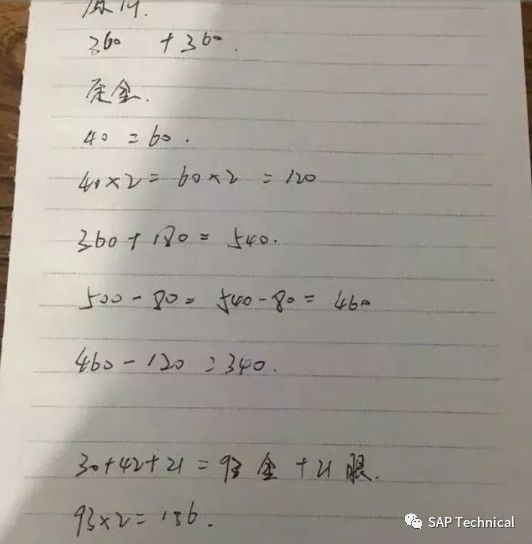 原价.
360 +360.
定金.
40=60.
40×2=60×2=120
360+180=540.
500-80=540-80=460
460-120=340.
30+42+21=93 金 +21 眼.
93×2=186.
SAP Technical